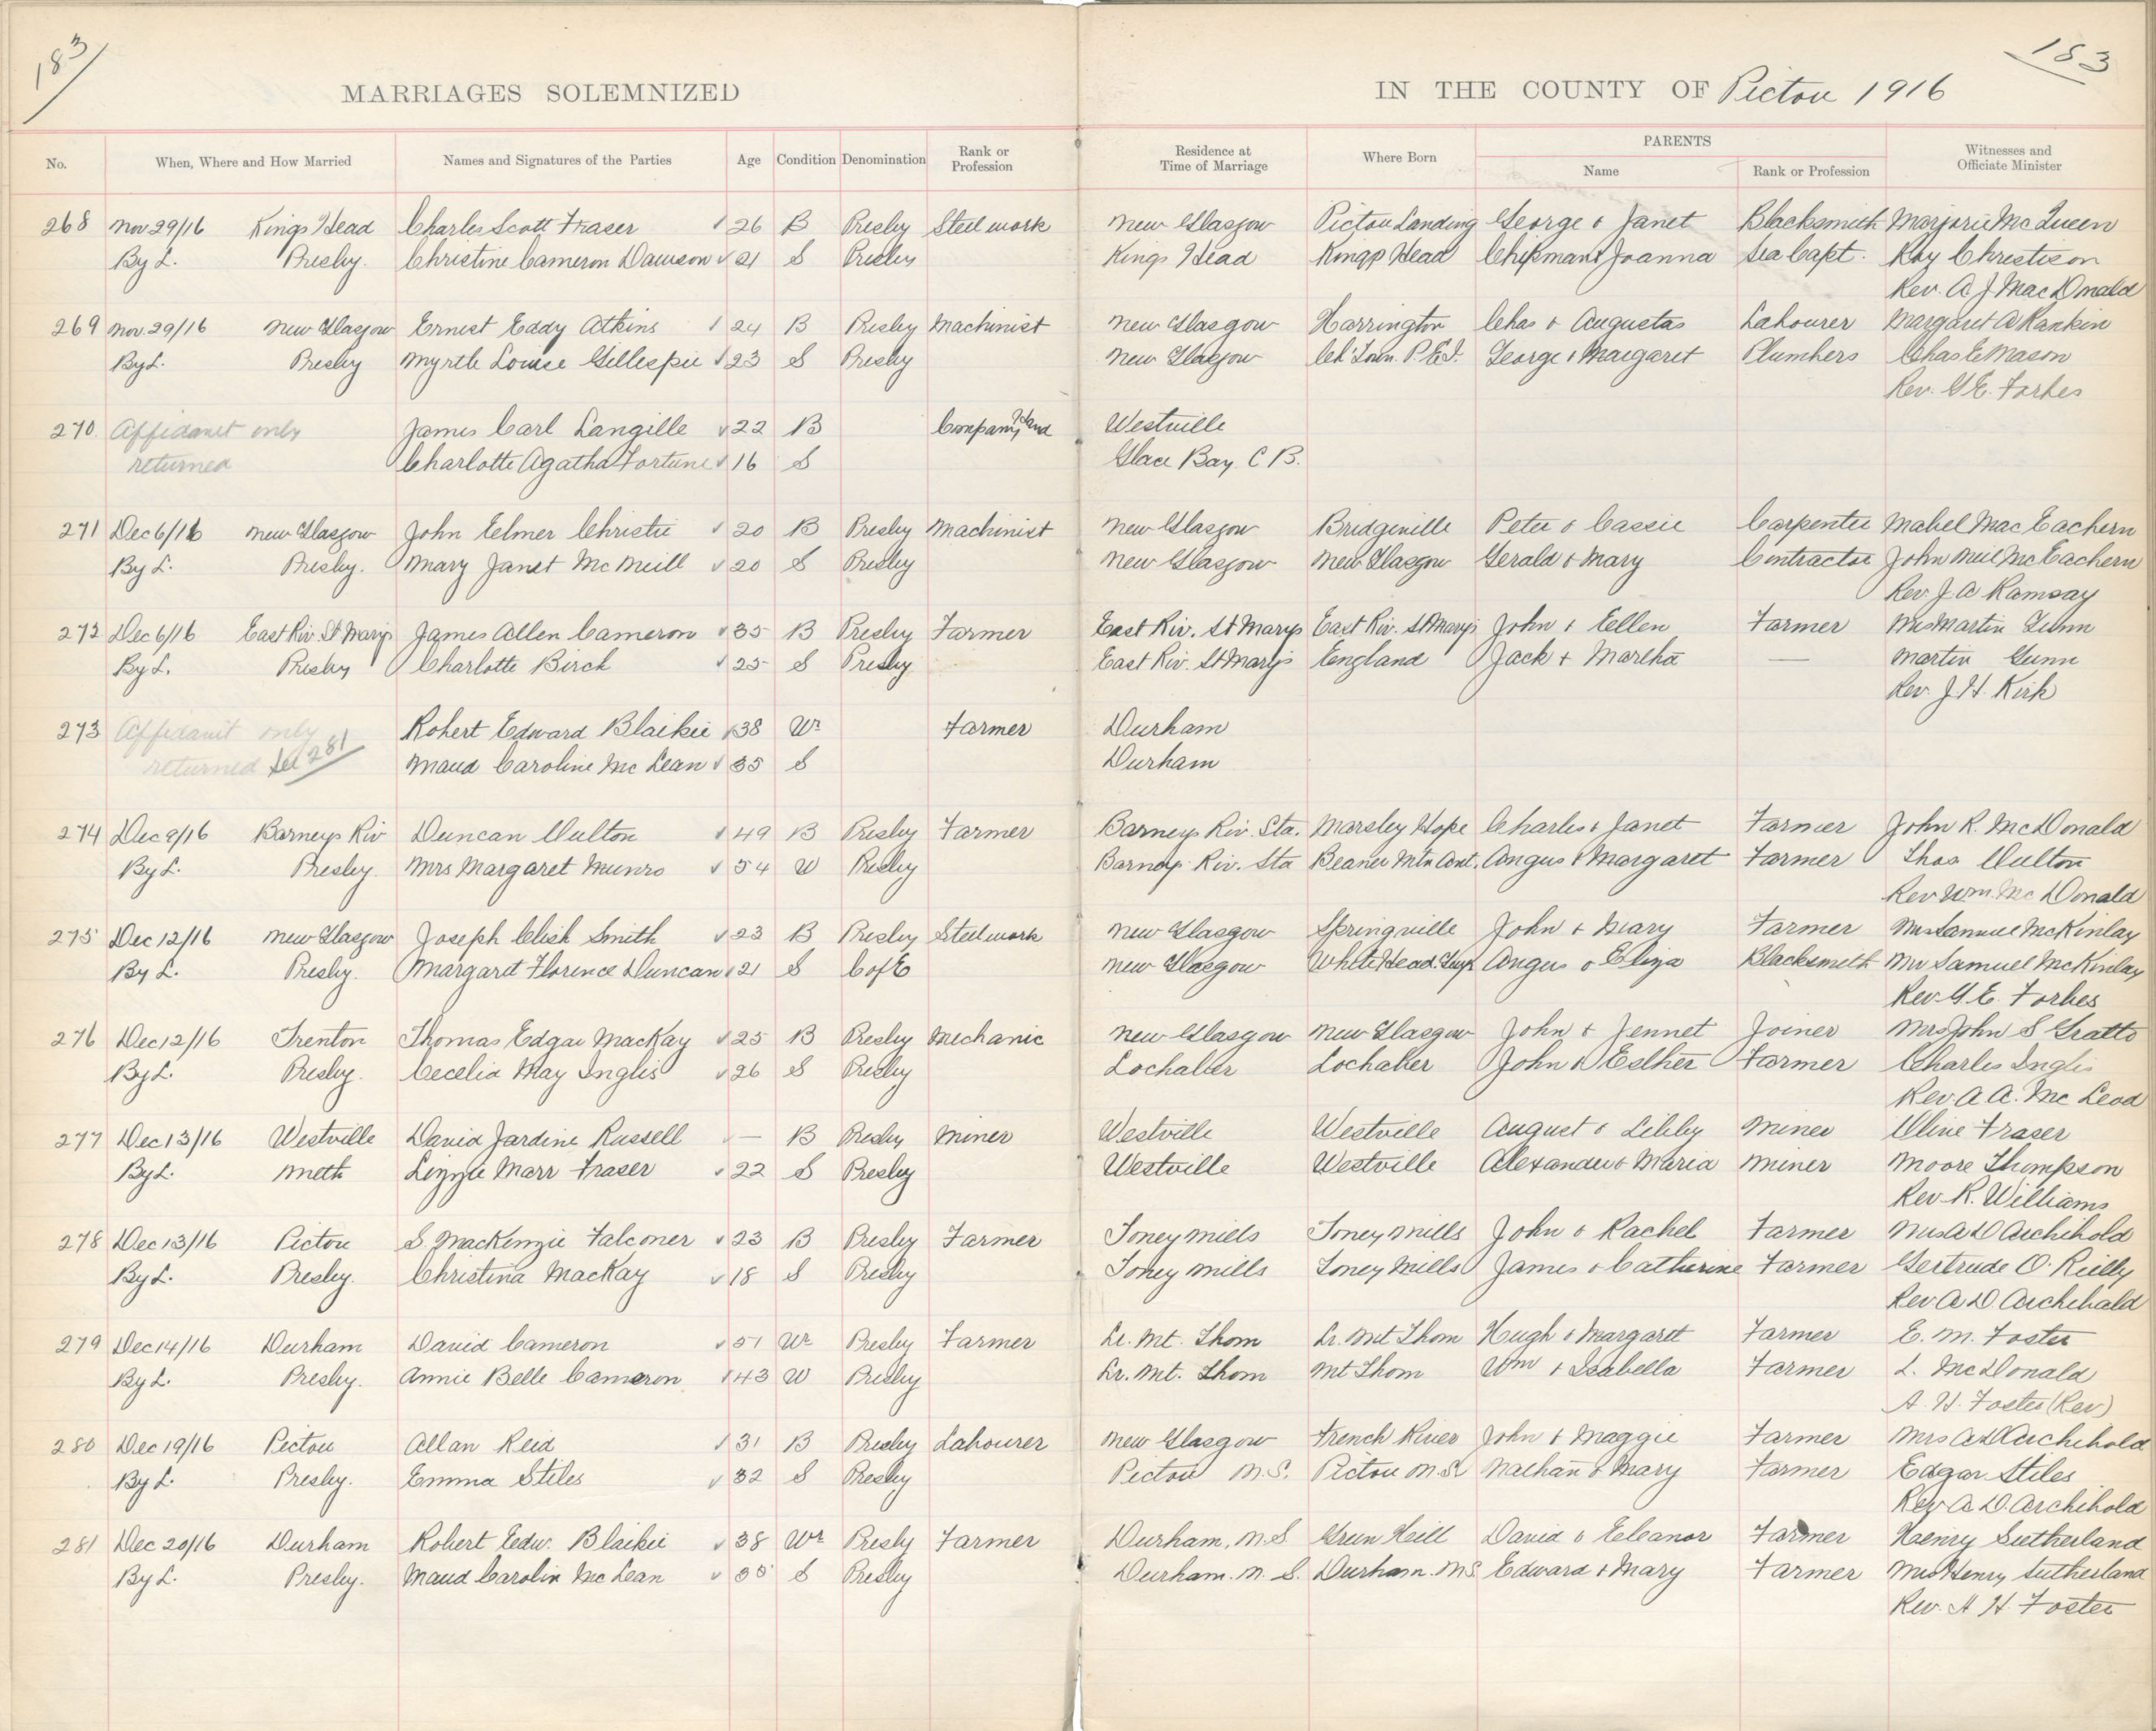 183 183
MARRIAGES SOLEMNIZED IN THE COUNTY OF Pictou 1916
No. When, Where and How Married Names and Signatures of the Parties Age Condition Denomination Rank or Profession Residence at Time of Marriage Where Born PARENTS Name Rank or Profession Witnesses and Officiate Minister
268 Nov 29/16 Kings Head Charles Scott Fraser 26 B Presby Steel work New Glasgow Pictou Landing George & Janet Blacksmith Marjorie McQueen
By L. Presby. Christine Cameron Dawson 21 S Presby Kings Head Kings Head Chipman & Joanna Sea Capt. Roy Christison
Rev. A. J. MacDonald
269 Nov. 29/16 New Glasgow Ernest Eddy Atkins 24 B Presby Machinist New Glasgow Harrington Chas & Augustas Labourer Margaret A Rankin
By L. Presby Myrtle Louise Gillespie 23 S Presby New Glasgow Ch'Town. P.E.I. George & Margaret Plumbers Chas E Mason
Rev. G E. Forbes
270 Affidavit only James Carl Langille 22 B Company Hand Westville
returned Charlotte Agatha Fortune 16 S Glace Bay C B.
271 Dec 6/16 New Glasgow John Elmer Christie 20 B Presby Machinist New Glasgow Bridgeville Peter & Cassie Carpenter Mabel MacEachern
By L. Presby. Mary Janet McNeill 20 S Presby New Glasgow New Glasgow Gerald & Mary Contractor John Neil McEachern
Rev J. A Ramsay
272 Dec 6/16 East Riv. St Marys James Allen Cameron 35 B Presby Farmer East Riv. St Marys East Riv. St Marys John & Ellen Farmer Mrs Martin Gunn
By L. Presby Charlotte Birch 25 S Presby East Riv. St Marys England Jack & Martha — Martin Gunn
Rev. J. H. Kirk
273 Affidavit only Robert Edward Blaikie 38 Wr Farmer Durham
returned See 281 Maud Caroline McLean 35 S Durham
274 Dec 9/16 Barneys Riv Duncan Culton 49 B Presby Farmer Barneys Riv. Sta. Marsley Hope Charles & Janet Farmer John R. McDonald
By L. Presby. Mrs Margaret Munro 54 W Presby Barneys Riv. Sta Beaver Mtn Ant. Angus & Margaret Farmer Thos Culton
Rev Wm. McDonald
275 Dec 12/16 New Glasgow Joseph Clish Smith 23 B Presby Steel work New Glasgow Springville John & Mary Farmer Mrs Samuel McKinlay
By L. Presby. Margaret Florence Duncan 21 S C of E New Glasgow White Head Guys Angus & Eliza Blacksmith Mr Samuel McKinlay
Rev. G. E. Forbes
276 Dec 12/16 Trenton Thomas Edgar MacKay 25 B Presby Mechanic New Glasgow New Glasgow John & Jennet Joiner Mrs John S Gratto
By L. Presby. Cecelia May Inglis 26 S Presby Lochaber Lochaber John & Esther Farmer Charles Inglis
Rev. A A. McLeod
277 Dec 13/16 Westville David Jardine Russell — B Presby Miner Westville Westville August & Libby Miner Olive Fraser
By L. Meth Lizzie Marr Fraser 22 S Presby Westville Westville Alexander & Maria Miner Moore Thompson
Rev. R. Williams
278 Dec 13/16 Pictou S. MacKenzie Falconer 23 B Presby Farmer Toney Mills Toney Mills John & Rachel Farmer Mrs A D Archibold
By L. Presby. Christina MacKay 18 S Presby Toney Mills Toney Mills James & Catherine Farmer Gertrude O. Reilly
Rev A D Archibald
279 Dec 14/16 Durham David Cameron 51 Wr Presby Farmer Lr. Mt. Thom Lr. Mt Thom Hugh & Margaret Farmer E. M. Foster
By L. Presby. Annie Belle Cameron 43 W Presby Lr. Mt. Thom Mt Thom Wm & Isabella Farmer L. McDonald
A. H. Foster (Rev)
280 Dec 19/16 Pictou Allan Reid 31 B Presby Labourer New Glasgow French River John & Maggie Farmer Mrs A D Archibold
By L. Presby. Emma Stiles 32 S Presby Pictou N.S. Pictou N.S. Nathan & Mary Farmer Edgar Stiles
Rev A. D. Archibold
281 Dec 20/16 Durham Robert Edw. Blaikie 38 Wr Presby Farmer Durham, N.S Green Hill David & Eleanor Farmer Henry Sutherland
By L. Presby. Maud Carolin McLean 35 S Presby Durham. N. S. Durham. N S. Edward & Mary Farmer Mrs Henry Sutherland
Rev. A H. Foster